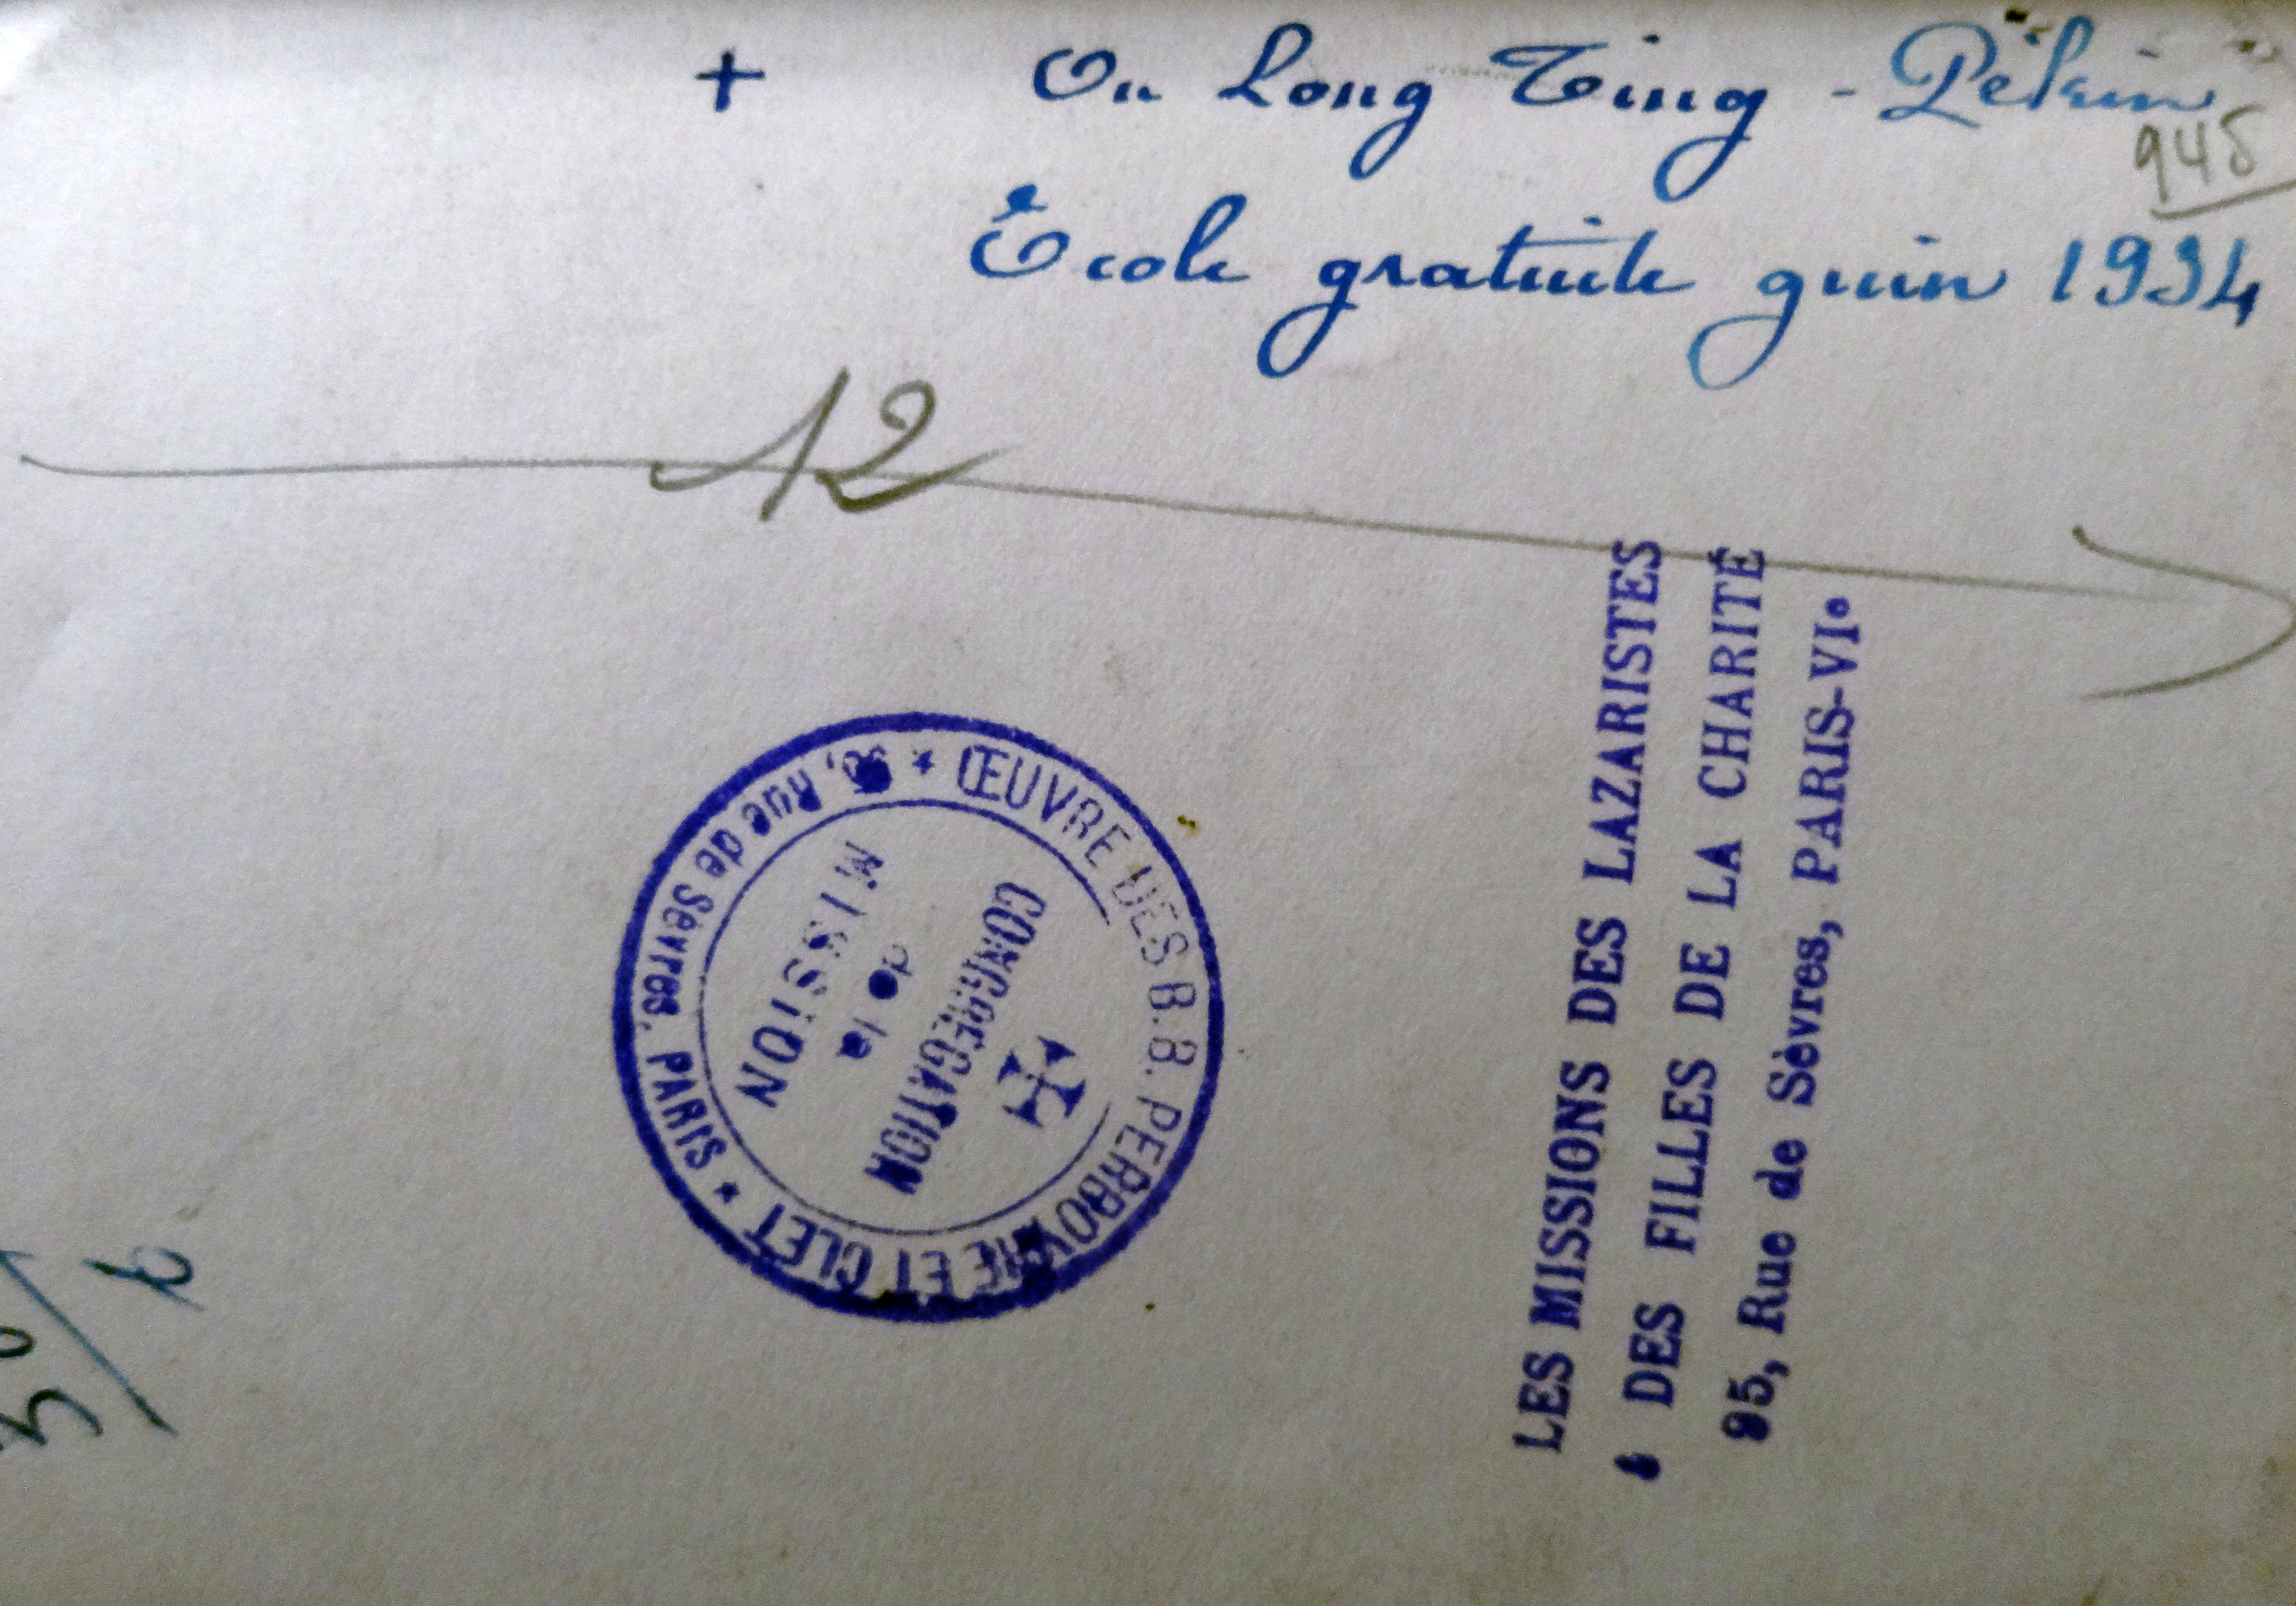 + Ou Long Ting - Pékin
945
École gratuite guin 1934
12
ŒUVRE DES B.B. PERBOYRE ET CLET
95, Rue de Sèvres, PARIS
CONGRÉGATION
de la
MISSION
LES MISSIONS DES LAZARISTES
& DES FILLES DE LA CHARITÉ
95, Rue de Sèvres, PARIS-VIe